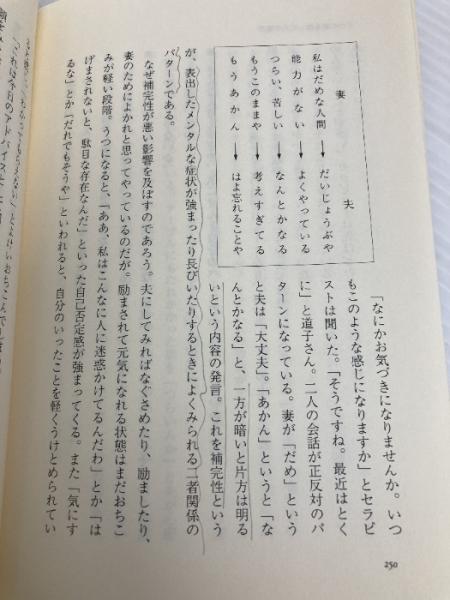 「なにかお気づきになりませんか。いつ
もこのような感じになりますか」とセラピ
ストは聞いた。「そうですね。最近はとく
に」と道子さん。二人の会話が正反対のパ
ターンになっている。妻が「だめ」という
と夫は「大丈夫」。「あかん」というと「な
んとかなる」と、一方が暗いと片方は明る
いという内容の発言。これを補完性という
妻 夫
私はだめな人間→だいじょうぶや
能力がない→よくやっている
つらい、苦しい→なんとかなる
もうこのままや→考えすぎてる
もうあかん→はよ忘れることや
が、表出したメンタルな症状が強まったり長びいたりするときによくみられる二者関係の
パターンである。
なぜ補完性が悪い影響を及ぼすのであろう。夫にしてみればなぐさめたり、励ましたり、
妻のためによかれと思ってやっているのだが。励まされて元気になれる状態はまだおちこ
みが軽い段階。うつになると、「ああ、私はこんなに人に迷惑かけてるんだわ」とか「は
げまされないと、駄目な存在なんだ」といった自己否定感が強まってくる。また「気にす
るな」とか「だれでもそうや」といわれると、自分のいったことを軽くうけとめられてい
250